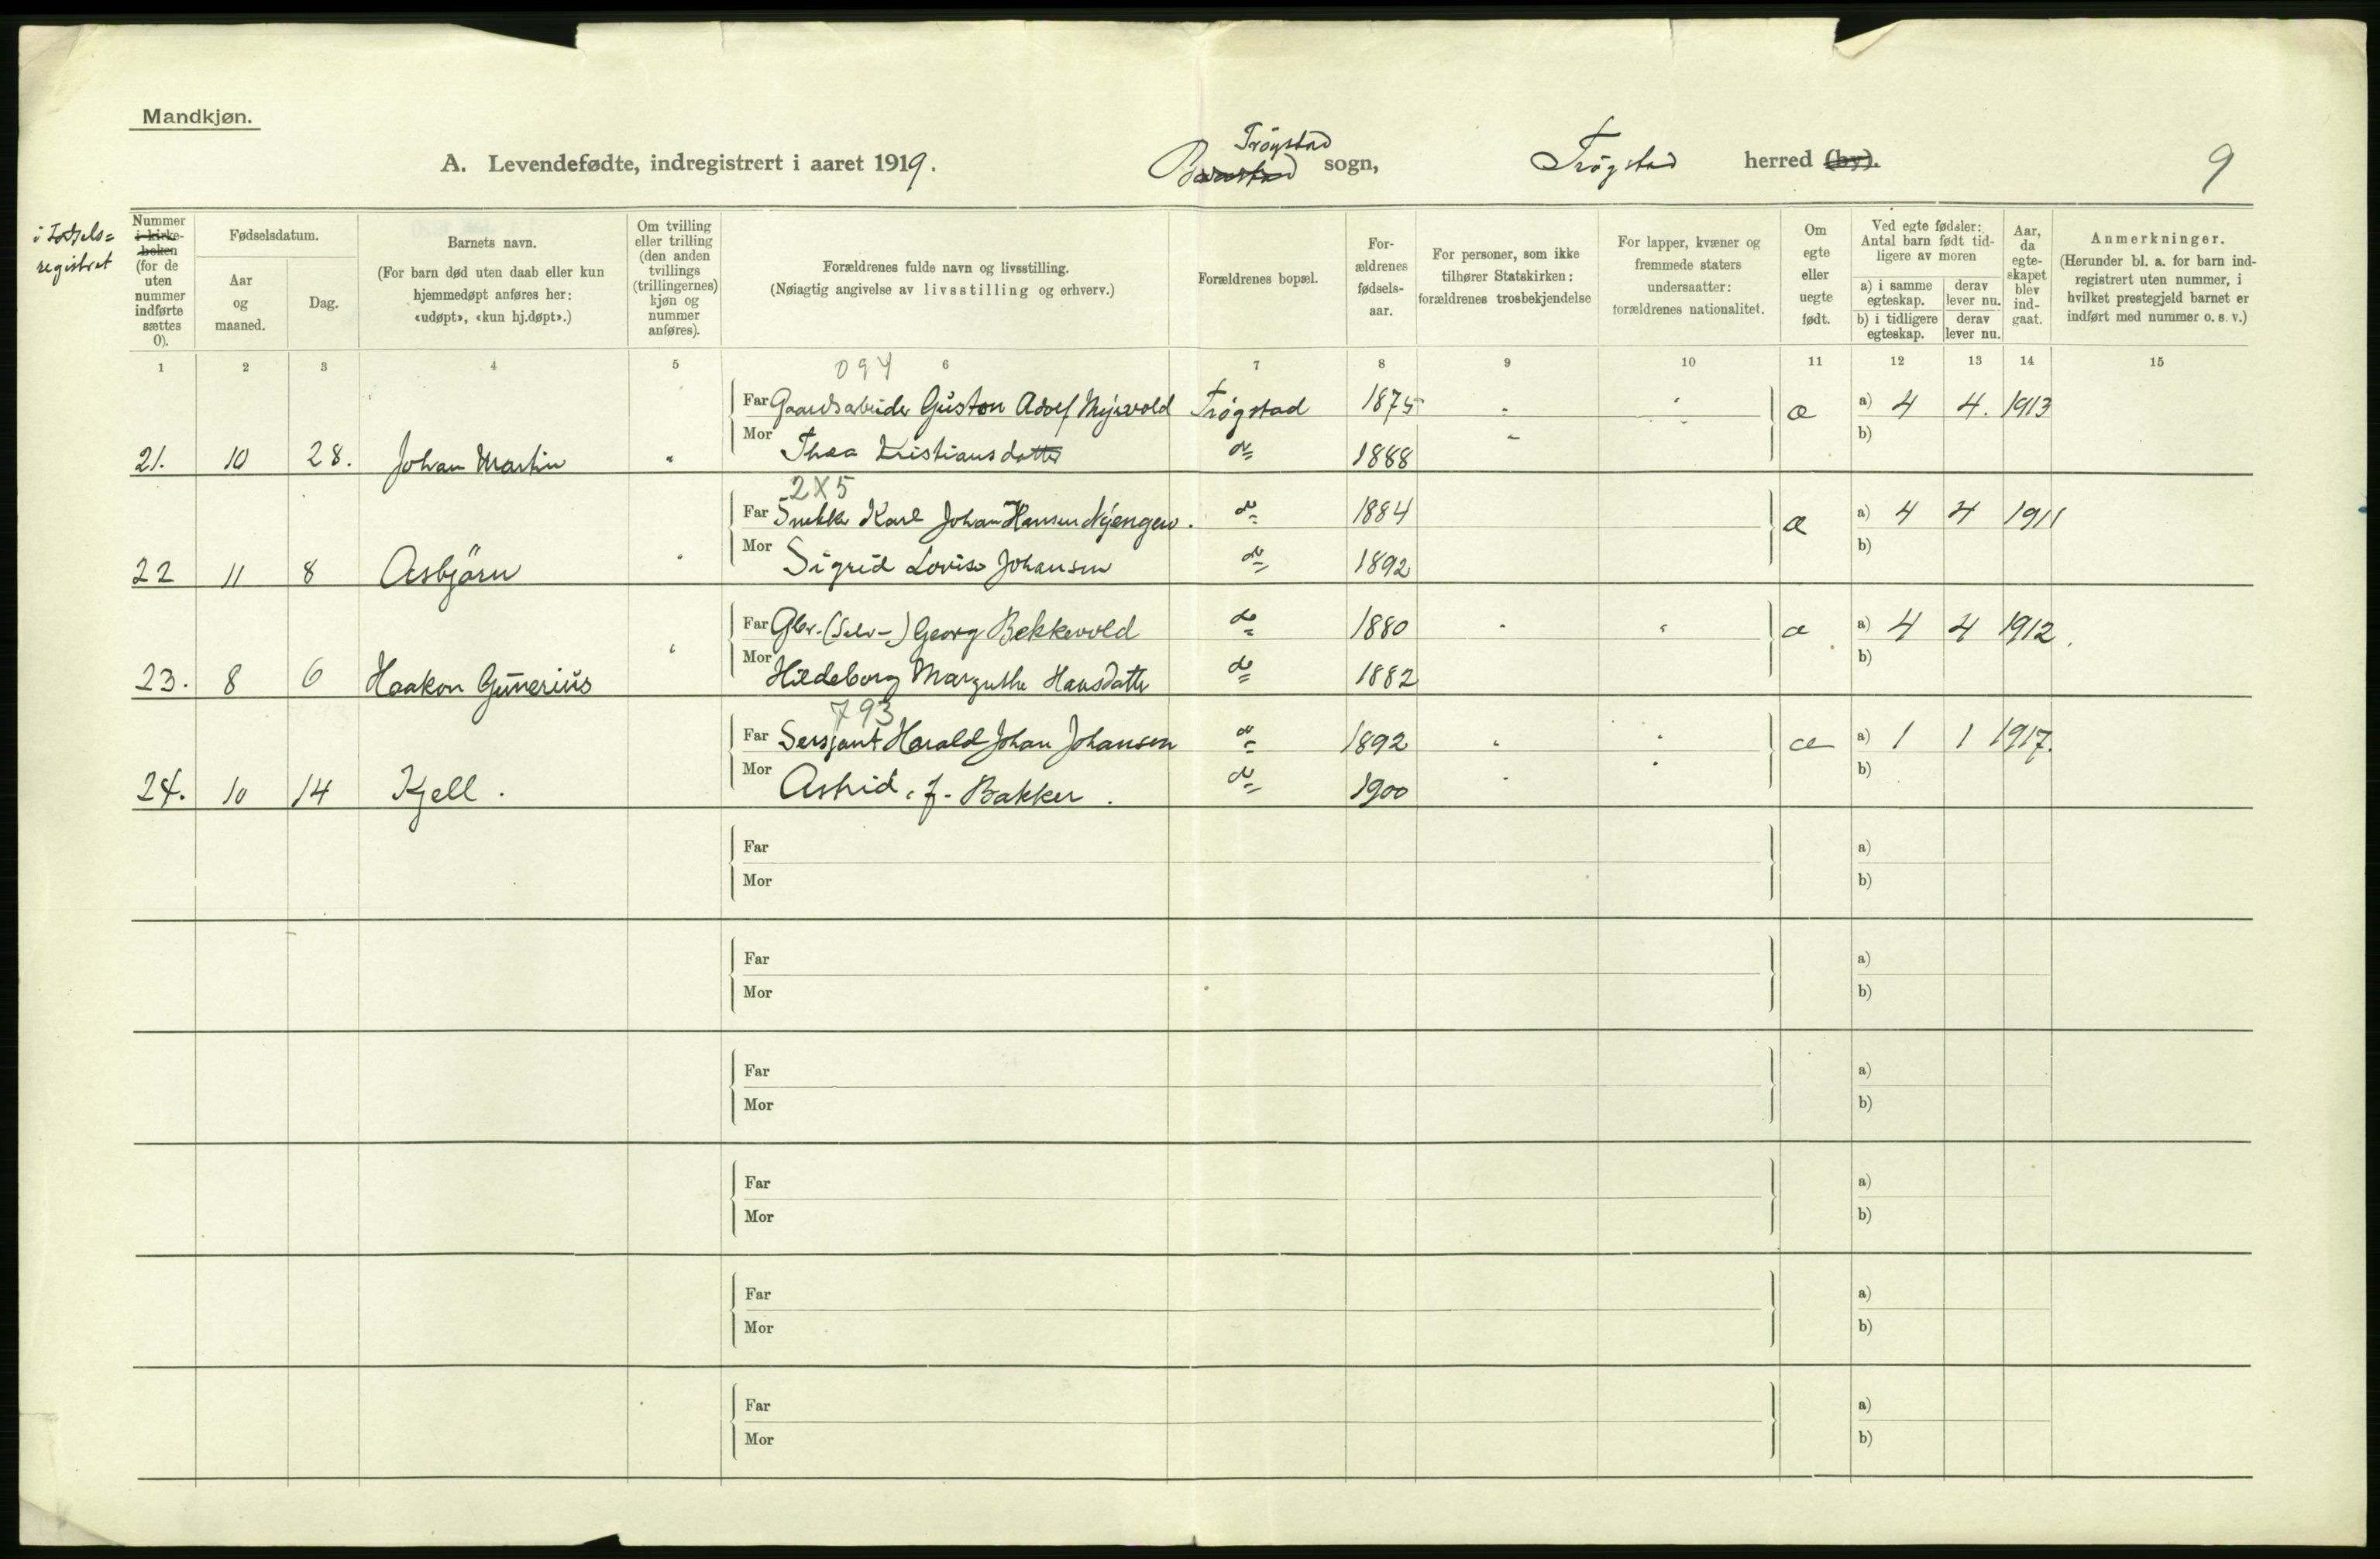 Mandkjøn.
A. Levendefødte, indregistrert i aaret 1919.
Trögstad
sogn,
Trögstad herred (by).
9
i Fødsels=
registret
Nummer
i kirke-
boken
(for de
uten
nummer
indførte
sættes
0).
Fødselsdatum.
Aar
og
maaned.
Dag.
Barnets navn.
(For barn død uten daab eller kun
hjemmedøpt anføres her:
«udøpt», «kun hj.døpt».)
Om tvilling
eller trilling
(den anden
tvillings
(trillingernes)
kjøn og
nummer
anføres).
Forældrenes fulde navn og livsstilling.
(Nøiagtig angivelse av livsstilling og erhverv.)
Forældrenes bopæl.
For-
ældrenes
fødsels-
aar.
For personer, som ikke
tilhører Statskirken:
forældrenes trosbekjendelse
For lapper, kvæner og
fremmede staters
undersaatter:
forældrenes nationalitet.
Om
egte
eller
uegte
født.
Ved egte fødsler:
Antal barn født tid-
ligere av moren
a) i samme
egteskap.
derav
lever nu.
b) i tidligere
egteskap.
derav
lever nu.
Aar,
da
egte-
skapet
blev
ind-
gaat.
Anmerkninger.
(Herunder bl. a. for barn ind-
registrert uten nummer, i
hvilket prestegjeld barnet er
indført med nummer o. s. v.)
1 2 3 4 5 6 7 8 9 10 11 12 13 14 15
094
Far Gaardsarbeider Gustav Adolf Myrvold Trögstad 1875 æ a) 4 4. 1913
Mor Thea Kristiansdatter do 1888 b)
21. 10 28. Johan Martin
2X5
Far Snekker Karl Johan Hansen Nyengen. do 1884 æ a) 4 4 1911
Mor Sigrid Lovise Johansen do 1892 b)
22 11 8 Asbjörn
Far Gbr. (Selv-) Georg Bekkevold do 1880 æ a) 4 4 1912
Mor Hildeborg Margrethe Hansdatter do 1882 b)
23. 8 6 Haakon Gunerius
793
Far Sersjant Harald Johan Johansen do 1892 æ a) 1 1 1917.
Mor Astrid. J. Bakker. do 1900 b)
24. 10 14 Kjell.
Far a)
Mor b)
Far a)
Mor b)
Far a)
Mor b)
Far a)
Mor b)
Far a)
Mor b)
Far a)
Mor b)